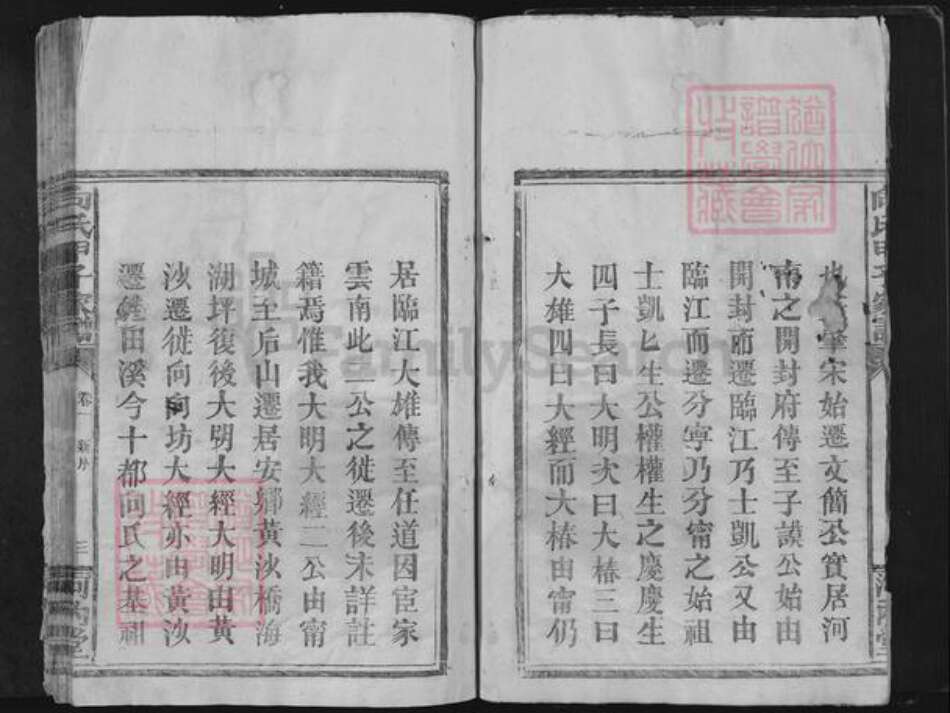 宋始遷文簡公實居河
南之開封府傳至子謨公始由
開封而遷臨江乃士凱公又由
臨江而遷分寧乃分甯之始祖
士凱公生公權權生之慶慶生
四子長曰大明次曰大椿三曰
大雄四曰大經而大椿由甯仍
居臨江大雄傳至任道因宦家
雲南此二公之徙遷後未詳註
籍焉惟我大明大經二公由甯
城至后山遷居安鄉黃沙橋海
湖坪復後大明大經大明由黃
沙遷徙向坊大經亦由黃沙
遷 田溪今十都向氏之基祖
向氏甲子家譜
卷一
三
譜學會
珍藏
FamilySearch